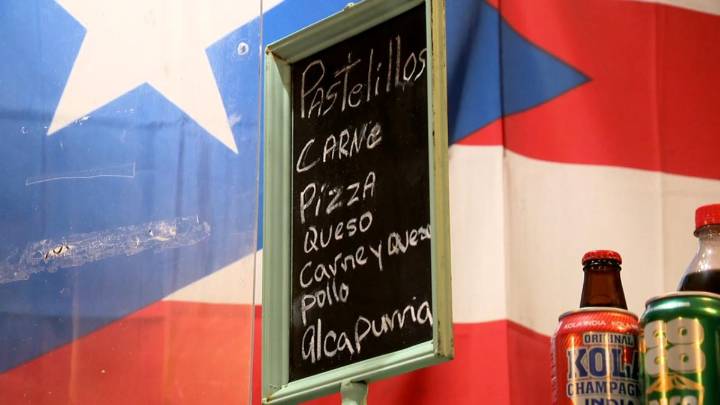 Pastelillos
CARNE
PIZZA
QUESO
Carne y Queso
pollo
alcapurria
KOLA INDIA
ORIGINAL
KOLA
CHAMPAGNE
INDIA
COCO